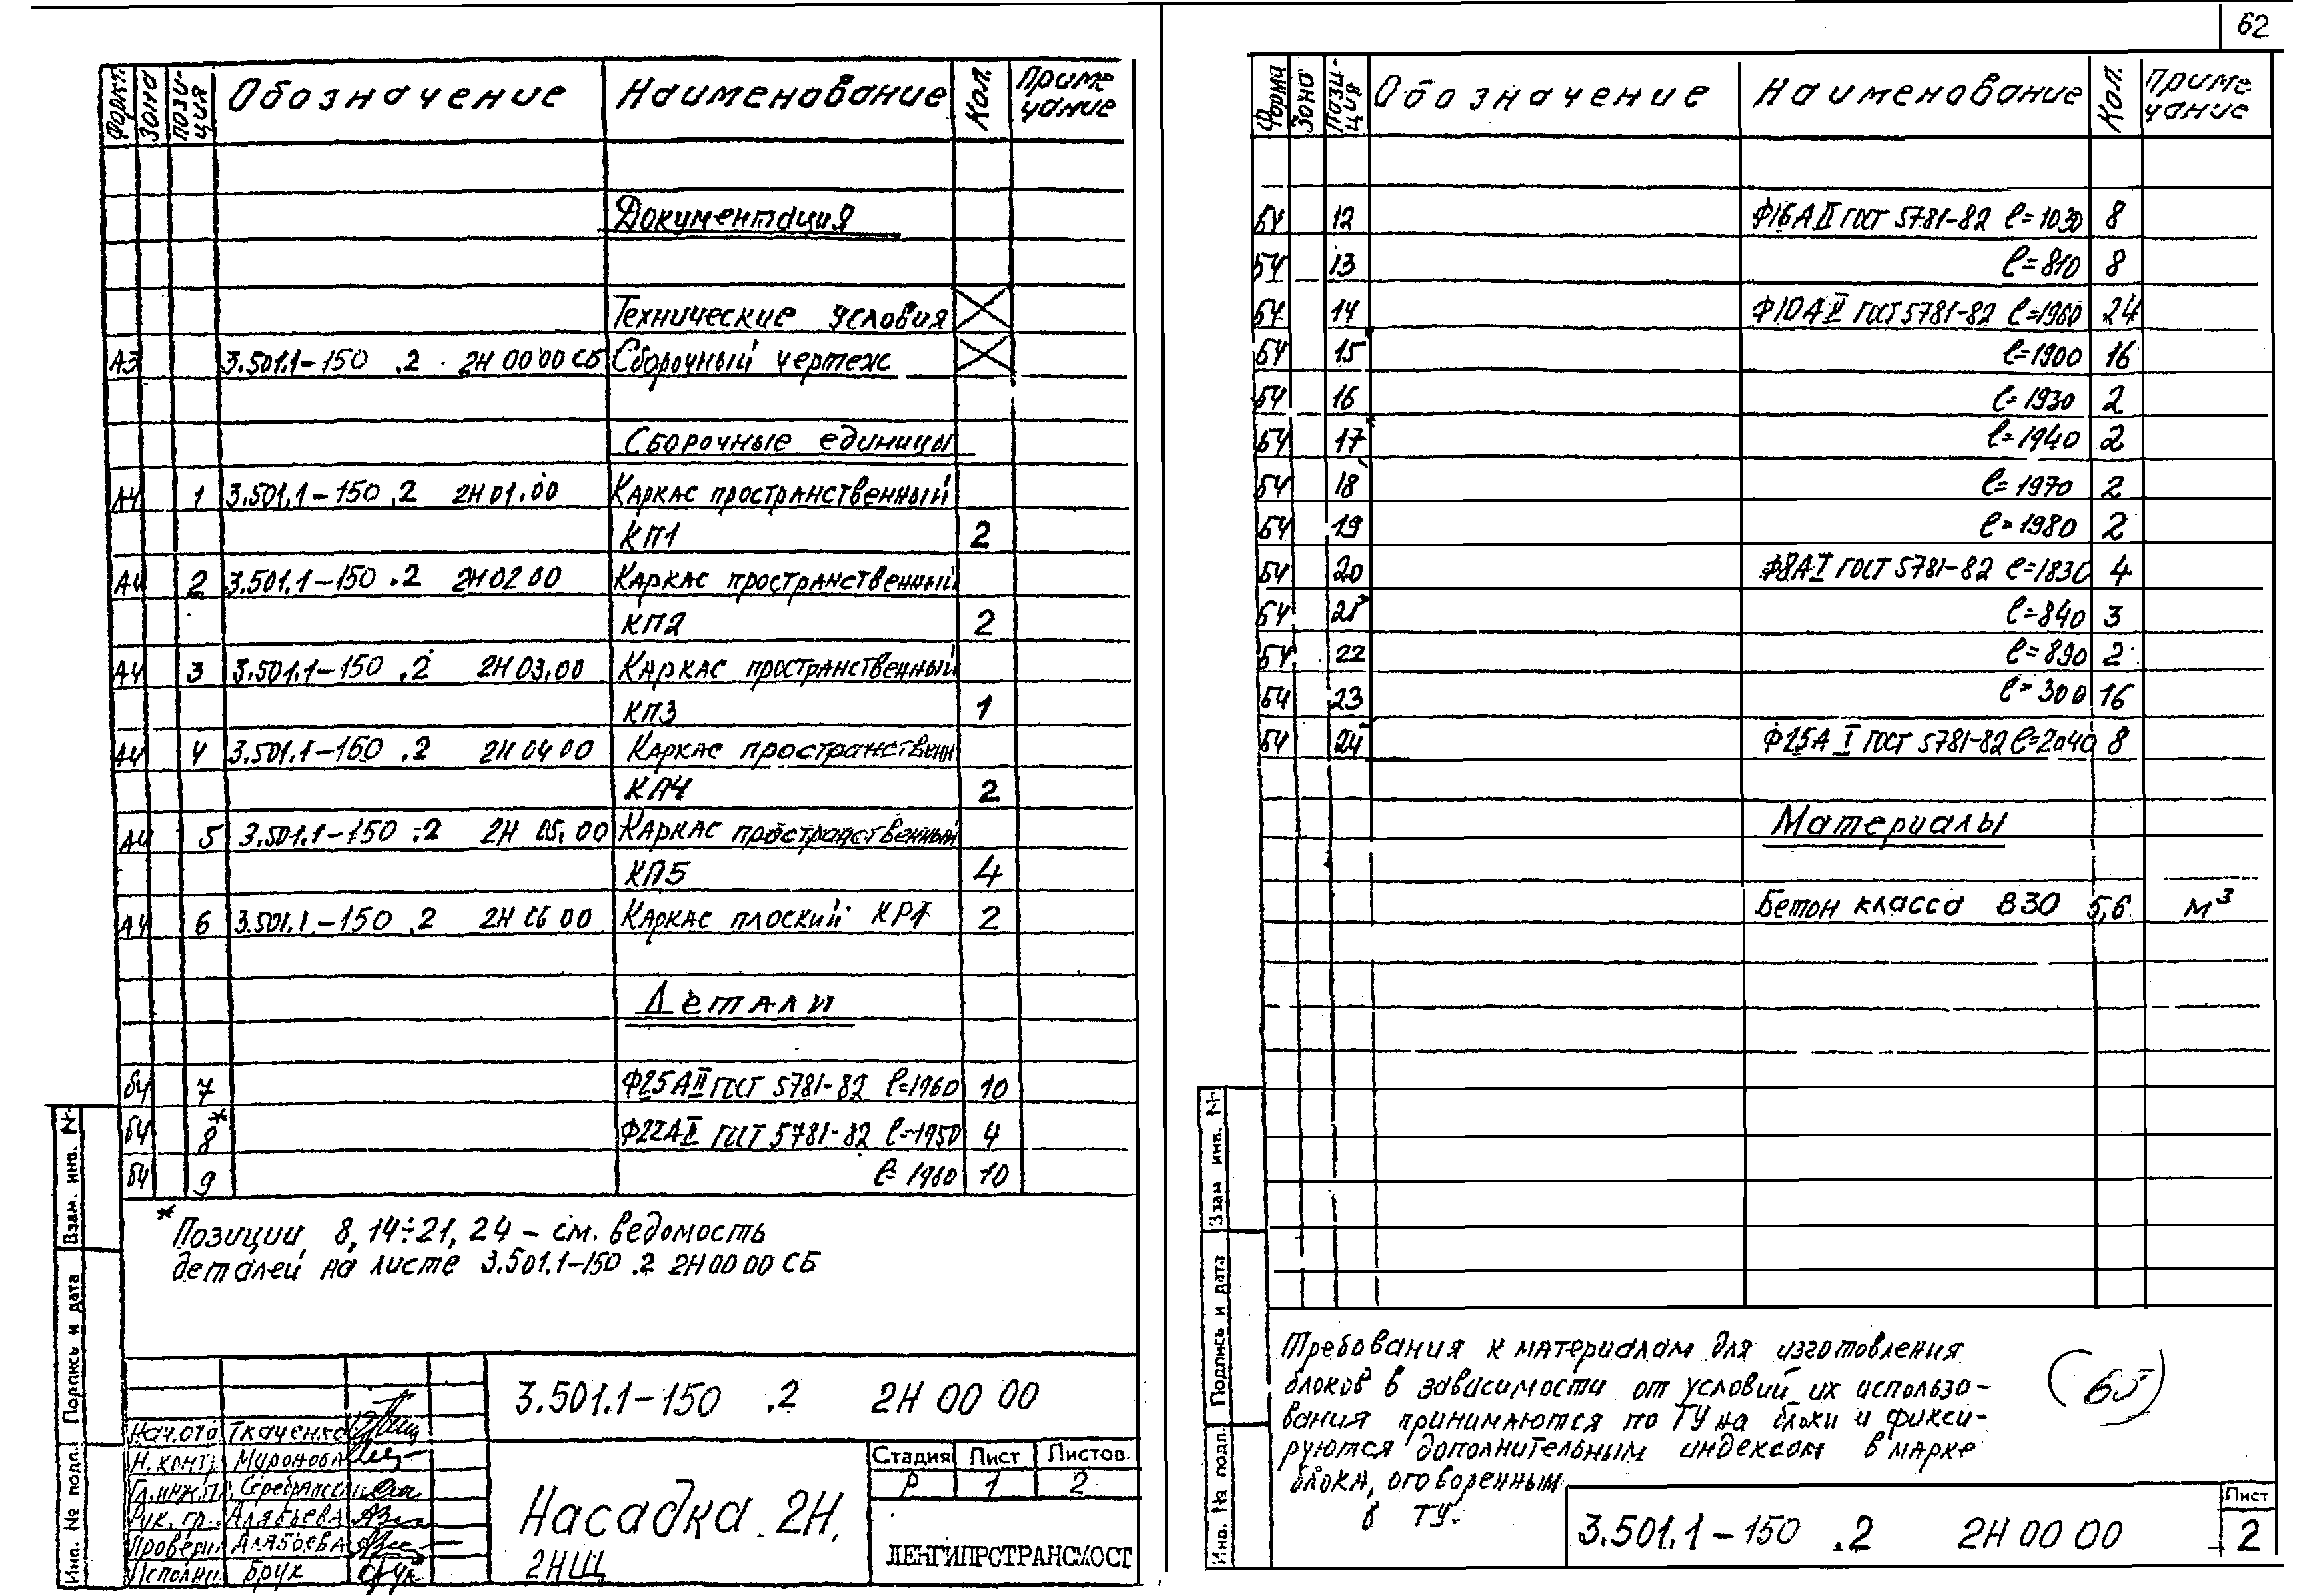 62
Формат Зона Пози- ция Обозначение Наименование Кол. Приме чание
Документация
Технические условия
А3 3.501.1-150 .2 2Н 00 00 СБ Сборочный чертеж
Сборочные единицы
А4 1 3.501.1-150 .2 2Н 01.00 Каркас пространственный
КП1 2
А4 2 3.501.1-150 .2 2Н 02 00 Каркас пространственный
КП2 2
А4 3 3.501.1-150 .2 2Н 03.00 Каркас пространственный
КП3 1
А4 4 3.501.1-150 .2 2Н 04 00 Каркас пространственн
КП4 2
А4 5 3.501.1-150 .2 2Н 05.00 Каркас пространственный
КП5 4
А4 6 3.501.1-150 .2 2Н 06 00 Каркас плоский КР1 2
Детали
БЧ 7 Ф25АII ГОСТ 5781-82 ℓ=1960 10
БЧ 8* Ф22АII ГОСТ 5781-82 ℓ=1950 4
БЧ 9 ℓ=1960 10
* Позиции 8, 14÷21, 24 – см. ведомость
деталей на листе 3.501.1-150 .2 2Н 00 00 СБ
3.501.1-150 .2 2Н 00 00
Нач.отд Ткаченко
Н. контр. Миронова
Гл.инж.п.
Рук. гр. Алябьева
Проверил Алябьева
Исполни. Брук
Насадка 2Н,
2НЩ
Стадия Лист Листов
Р 1 2
ЛЕНГИПРОТРАНСМОСТ
Взам. инв. №
Подпись и дата
Инв. № подл.
Форма Зона Пози- ция Обозначение Наименование Кол. Приме чание
БЧ 12 Ф16АII ГОСТ 5781-82 ℓ=1030 8
БЧ 13 ℓ=810 8
БЧ 14 Ф10АII ГОСТ 5781-82 ℓ=1960 24
БЧ 15 ℓ=1900 16
БЧ 16 ℓ=1930 2
БЧ 17 ℓ=1940 2
БЧ 18 ℓ=1970 2
БЧ 19 ℓ=1980 2
БЧ 20 Ф8АI ГОСТ 5781-82 ℓ=1830 4
БЧ 21 ℓ=840 3
БЧ 22 ℓ=890 2
БЧ 23 ℓ=300 16
БЧ 24 Ф25А I ГОСТ 5781-82 ℓ=2040 8
Материалы
Бетон класса В30 5,6 м³
Требования к материалам для изготовления
блоков в зависимости от условий их использо-
вания принимаются по ТУ на блоки и фикси-
руются дополнительным индексом в марке
блока, оговоренным
в ТУ.
(65)
3.501.1-150 .2 2Н 00 00
Лист
2
Взам инв. №
Подпись и дата
Инв. № подл.